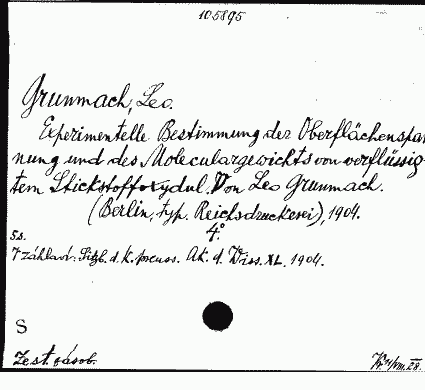 105895
Grunmach, Leo.
Experimentelle Bestimmung der Oberflächenspan
nung und des Moleculargewichts von verflüssig-
tem Stickstoffoxydul. Von Leo Grunmach.
(Berlin, typ. Reichsdruckerei), 1904.
4°
5s.
V záhlaví: Sitzb. d. k. preuss. Ak. d. Wiss. XL. 1904.
S
Zest. zásob.